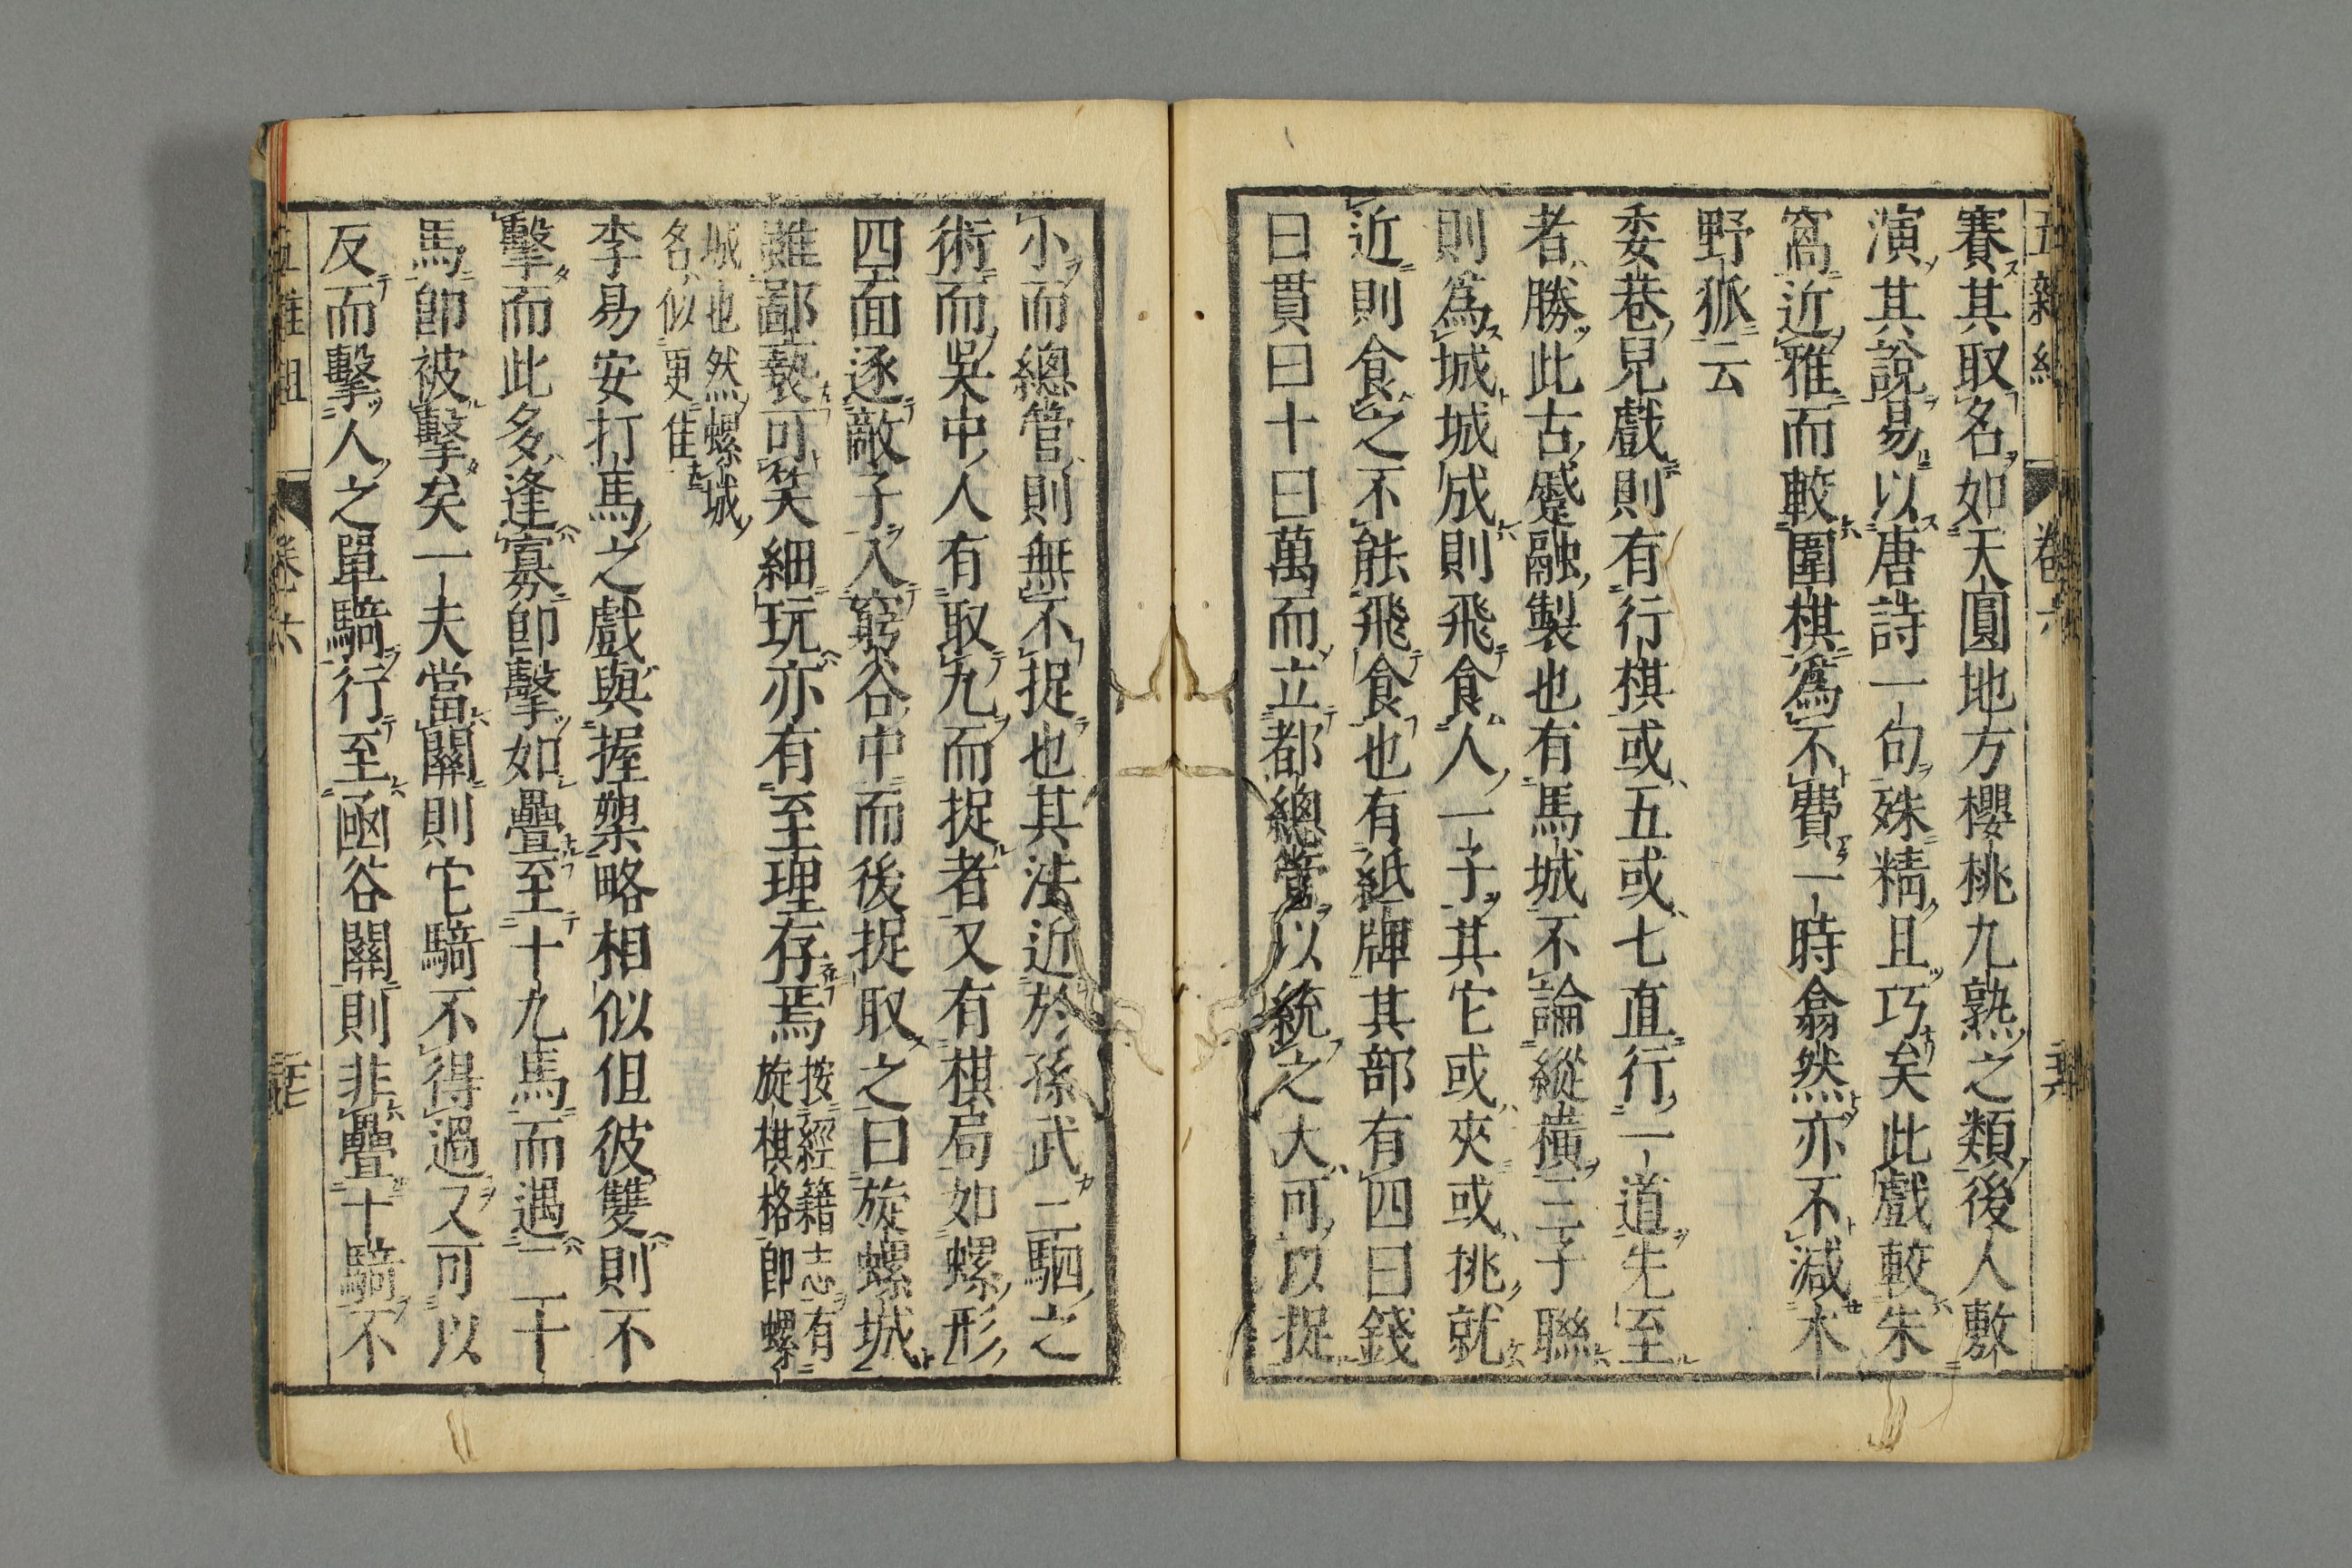 賽其取名如天圓地方櫻桃九熟之類後人敷
演其說易以唐詩一句殊精且巧矣此戲較朱
窩近雅而較圍棋爲不費一時翕然亦不減木
野狐云
委巷兒戲則有行棋或五或七直行一道先至
者勝此古蹙融製也有馬城不論縱橫三子聯
則爲城城成則飛食人一子其它或夾或挑就
近則食之不能飛食也有紙牌其部有四曰錢
曰貫曰十曰萬而立都總管以統之大可以捉
小而總管則無不捉也其法近於孫武三駟之
術而吳中人有取九而捉者又有棋局如螺形
四面逐敵子入窮谷中而後捉取之曰旋螺城
雖鄙褻可笑細玩亦有至理存焉
按經籍志有
旋棋格卽螺
城也然螺城
名似更佳
李易安打馬之戲與握槊略相似但彼雙則不
擊而此多逢寡卽擊如疊至十九馬而遇二十
馬卽被擊矣一夫當關則它騎不得過又可以
反而擊人之單騎行至函谷關則非疊十騎不
卷六